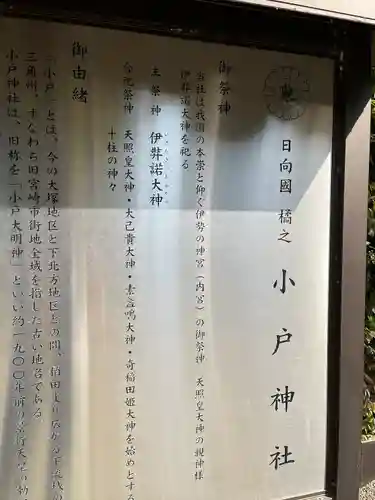 日向國 橘之 小戸神社
御祭神
当社は我国の本宗と仰ぐ伊勢の神宮（内宮）の御祭神 天照皇大神の親神様
伊弉諾大神を祀る
主祭神 伊弉諾大神
合祀祭神 天照皇大神・大己貴大神・素盞鳴大神・奇稲田姫大神を始めとする
十柱の神々
御由緒
「小戸」とは、今の大塚地区と下北方地区との間、
三角州、すなわち旧宮崎市街地全域を指した古い地名である
小戸神社は、旧称を「小戸大明神」といい約一九〇〇年前の景行天皇の勅